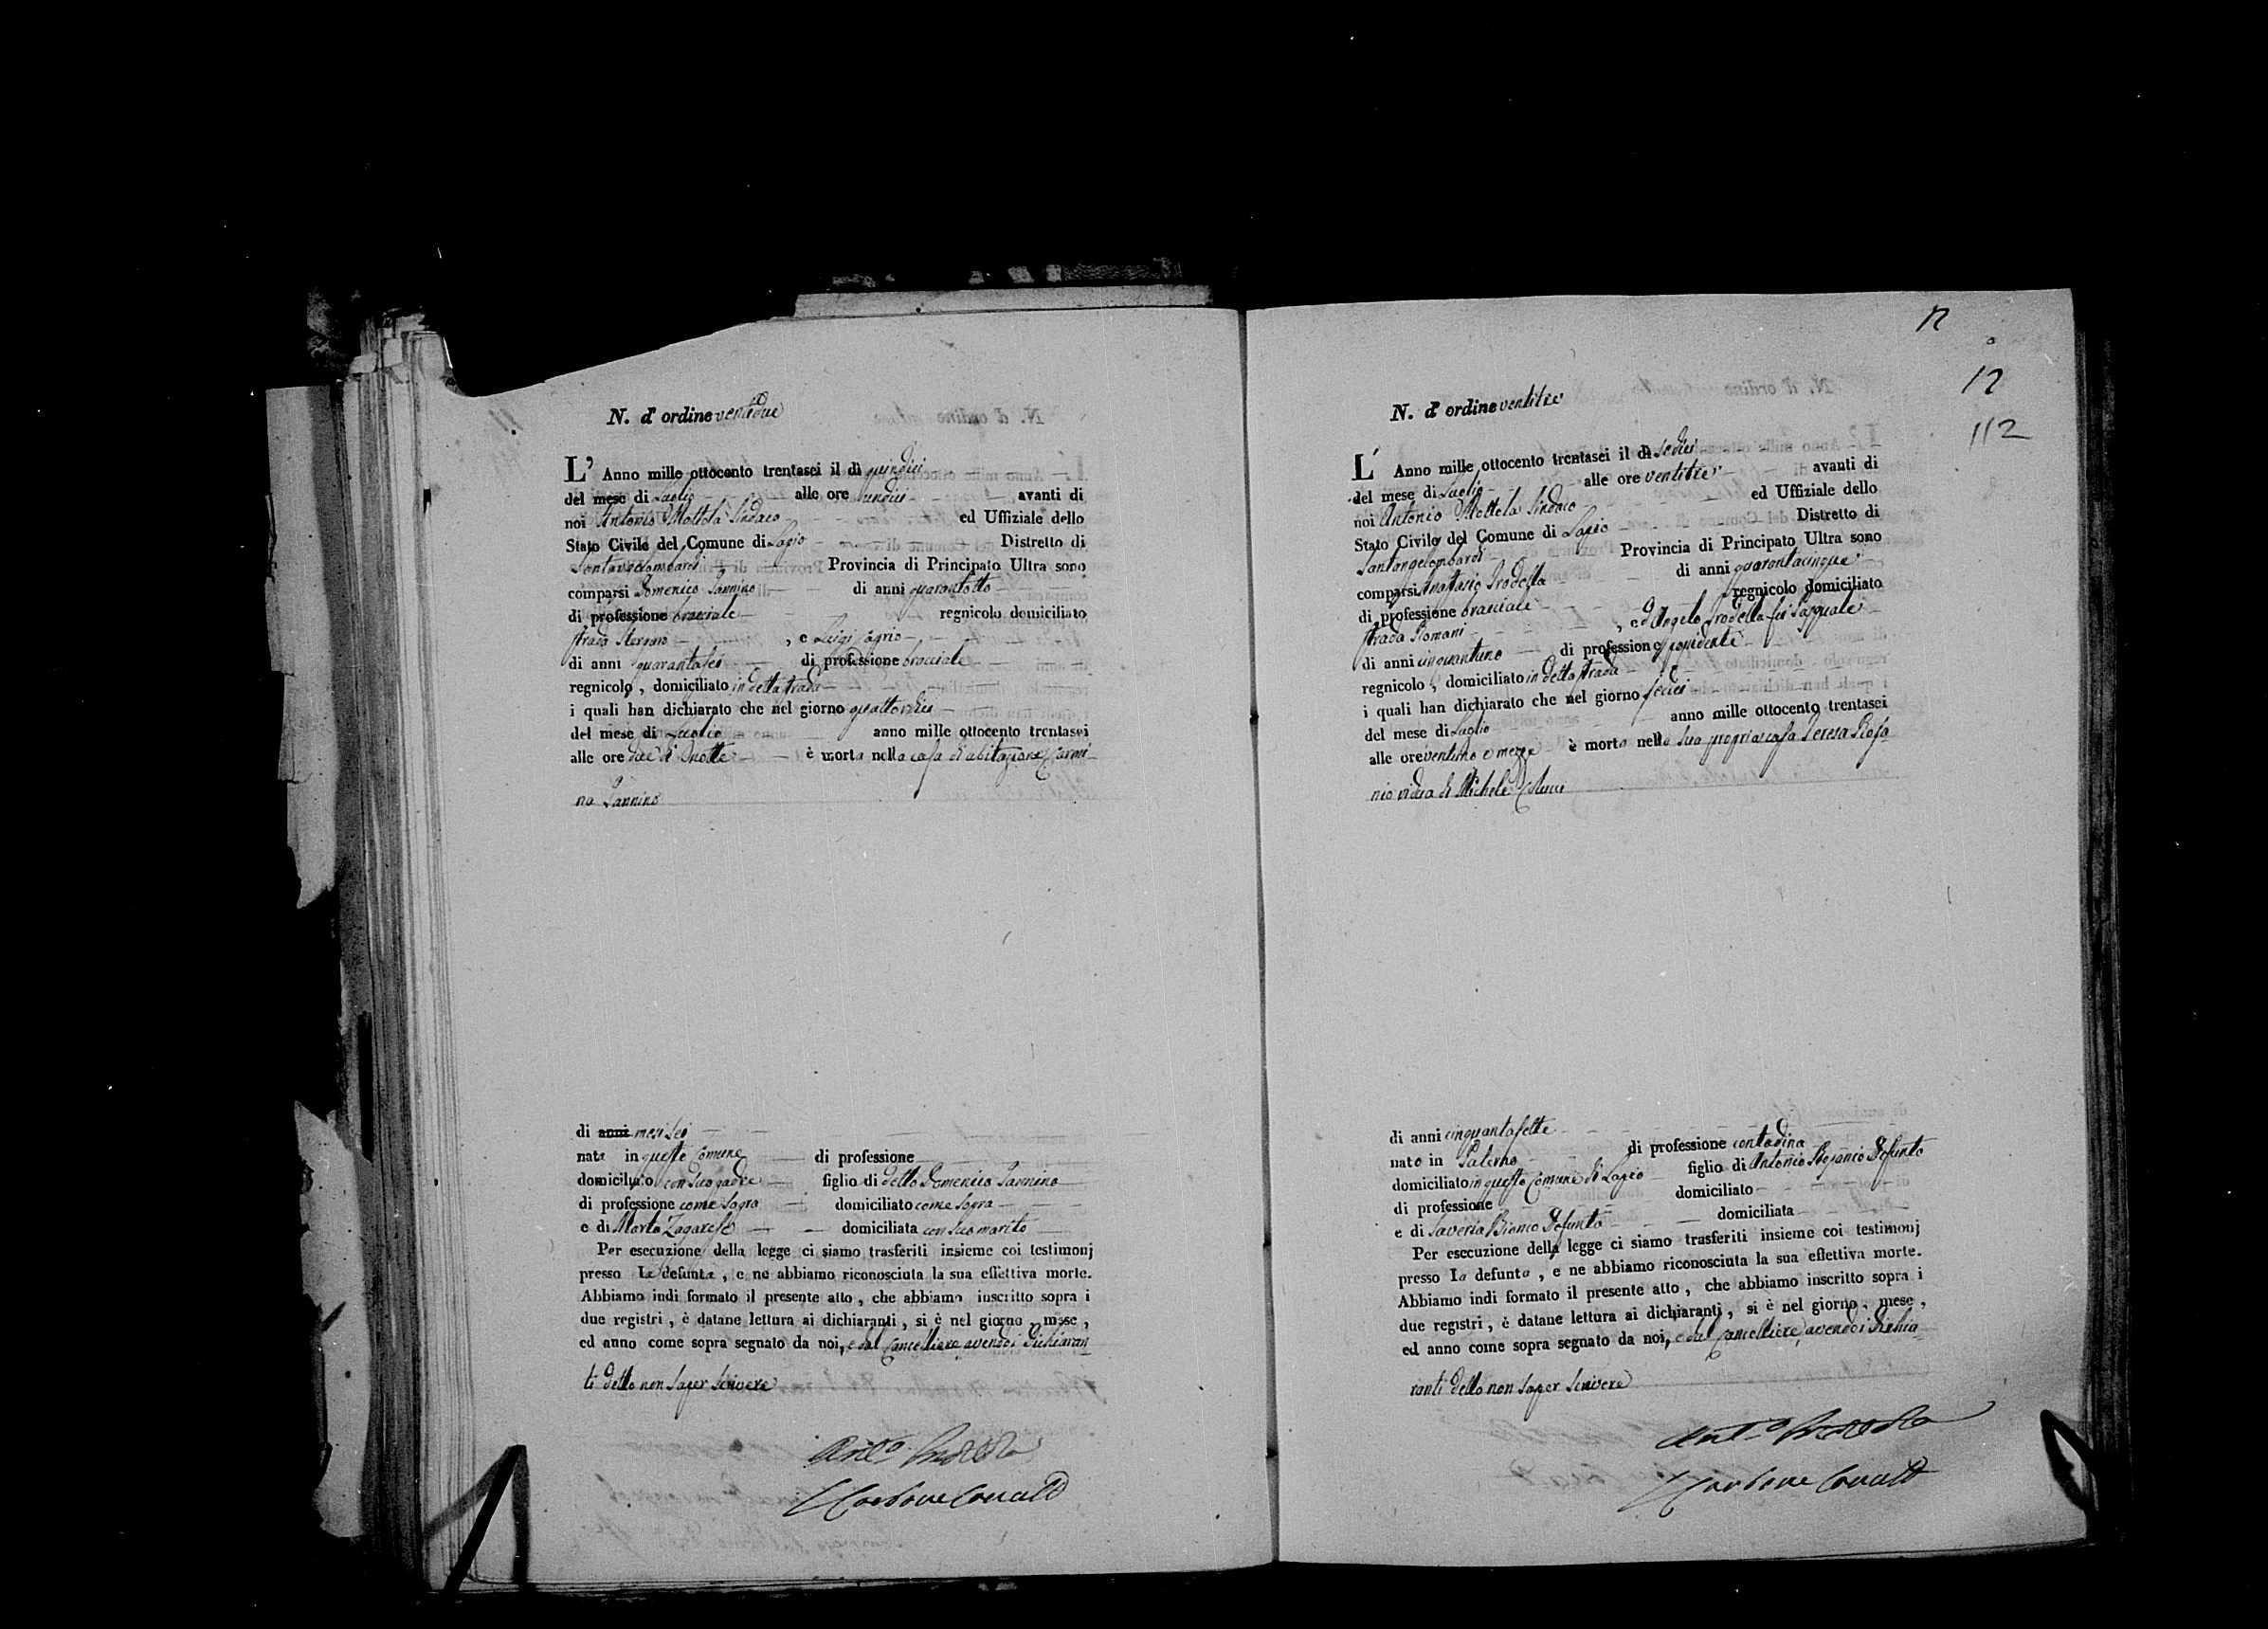 N. d'ordine ventidue
L' Anno mille ottocento trentasei il dì quindici
del mese di Luglio alle ore undici avanti di
noi Antonio Mottola Sindaco ed Uffiziale dello
Stato Civile del Comune di Lapio Distretto di
Provincia di Principato Ultra sono
comparsi Domenico Iannino di anni quarantotto
di professione bracciale regnicolo domiciliato
strada , e Luigi
di anni quarantasei di professione bracciale
regnicolo, domiciliato in detta strada
i quali han dichiarato che nel giorno quattordici
del mese di Luglio anno mille ottocento trentasei
alle ore due di notte è morta nella casa di abitazione Carmi-
na Iannino
di anni mesi sei
nata in questo Comune di professione
domiciliato con suo padre figlio di detto Domenico Iannino
di professione come sopra domiciliato come sopra
e di Marta Zagarese domiciliata con suo marito
Per esecuzione della legge ci siamo trasferiti insieme coi testimonj
presso la defunta, e ne abbiamo riconosciuta la sua effettiva morte.
Abbiamo indi formato il presente atto, che abbiamo inscritto sopra i
due registri, è datane lettura ai dichiaranti, si è nel giorno, mese,
ed anno come sopra segnato da noi, e dal Cancelliere avendo i dichiaran
ti detto non saper scrivere
12
12
112
N. d'ordine ventitre
L' Anno mille ottocento trentasei il dì sedici
del mese di Luglio alle ore ventitre avanti di
noi Antonio Mottola Sindaco ed Uffiziale dello
Stato Civile del Comune di Lapio Distretto di
Santangelombardi Provincia di Principato Ultra sono
comparsi Anastasio di anni quarantacinque
di professione bracciale regnicolo domiciliato
strada Romani , ed Angelo fu Pasquale
di anni cinquantuno di professione possidente
regnicolo, domiciliato in detta strada
i quali han dichiarato che nel giorno sedici
del mese di Luglio anno mille ottocento trentasei
alle ore ventuno e mezza è morta nella sua propria casa Teresa Rofa
nio vidua di Michele Colucci
di anni cinquantasette
nato in Salerno di professione contadina
domiciliato in questo Comune di Lapio figlio di Antonio defunto
di professione domiciliato
e di Saveria Bianco defunta domiciliata
Per esecuzione della legge ci siamo trasferiti insieme coi testimonj
presso la defunta, e ne abbiamo riconosciuta la sua effettiva morte.
Abbiamo indi formato il presente atto, che abbiamo inscritto sopra i
due registri, è datane lettura ai dichiaranti, si è nel giorno, mese,
ed anno come sopra segnato da noi, e dal Cancelliere, avendo i dichia
ranti detto non saper scrivere